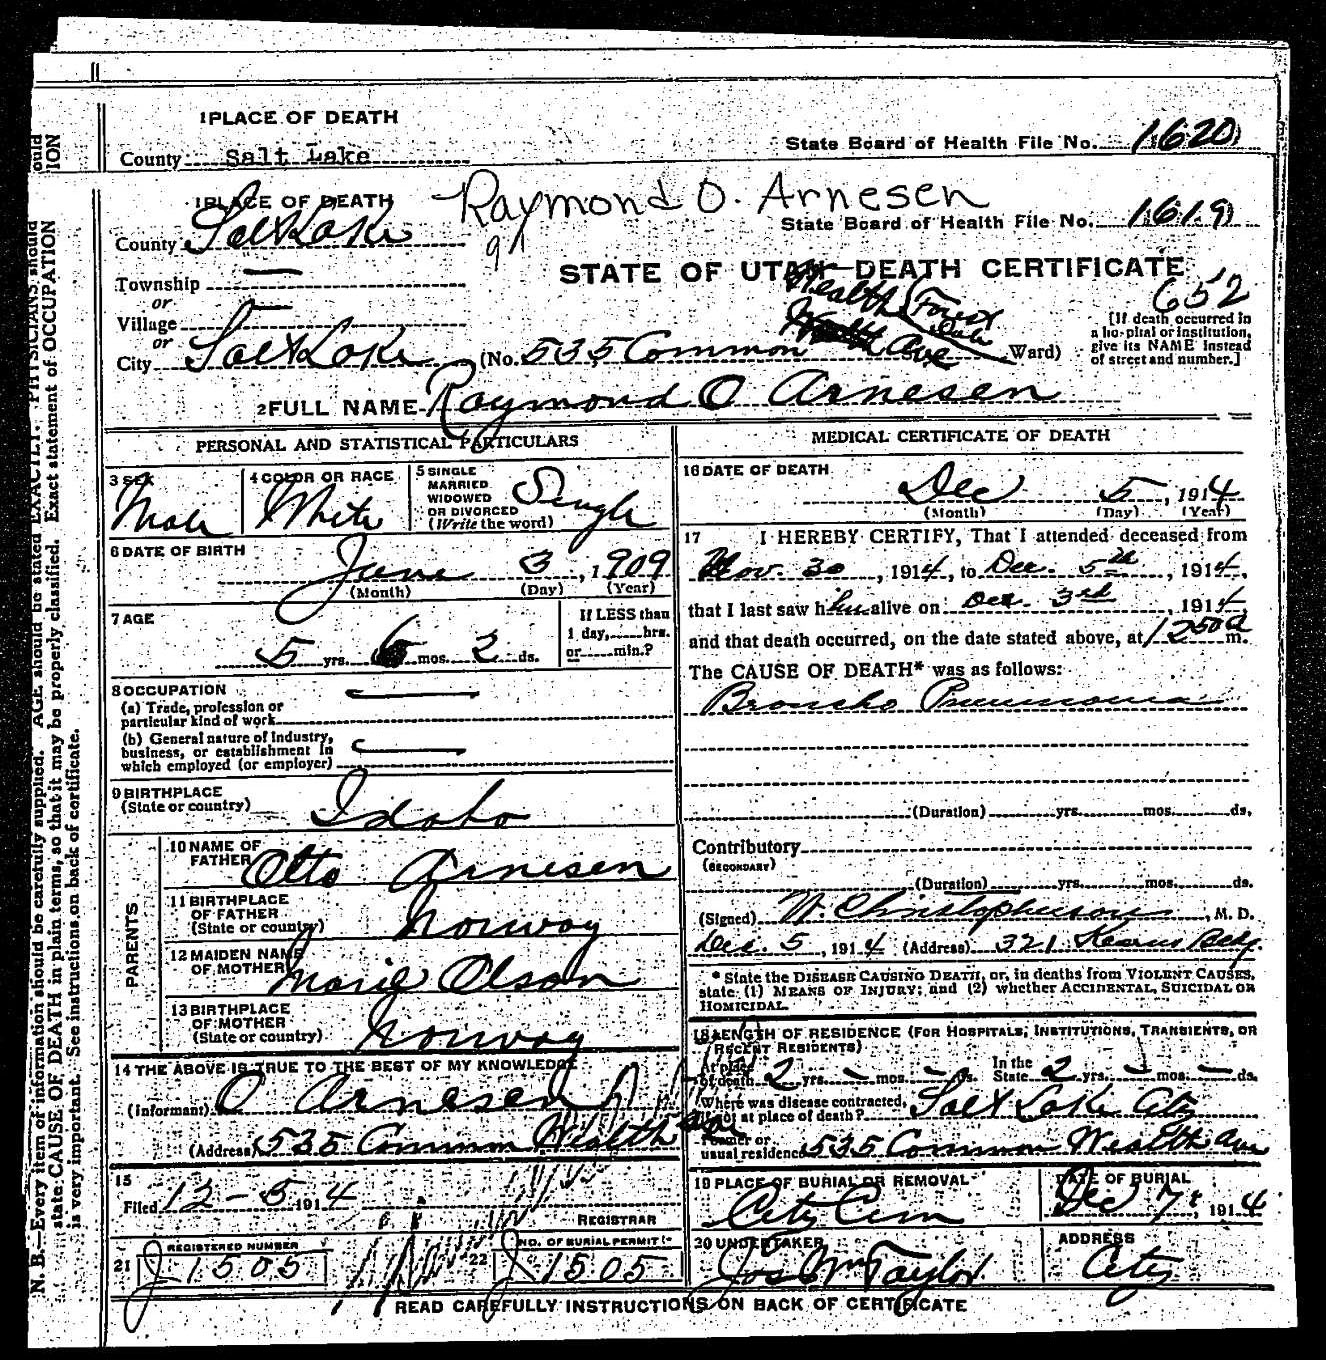 1 PLACE OF DEATH
County Salt Lake
State Board of Health File No. 1620
1 PLACE OF DEATH
Raymond O. Arnesen
State Board of Health File No. 1619
County Salt Lake
91
STATE OF UTAH—DEATH CERTIFICATE
652
Township —
or
Village —
or
City Salt Lake (No. 535 Common Wealth Ave Forest Dale Ward)
[If death occurred in a hospital or institution, give its NAME instead of street and number.]
2 FULL NAME Raymond O Arnesen
PERSONAL AND STATISTICAL PARTICULARS
3 SEX Male
4 COLOR OR RACE White
5 SINGLE MARRIED WIDOWED OR DIVORCED (Write the word) Single
6 DATE OF BIRTH June 3, 1909
(Month) (Day) (Year)
7 AGE 5 yrs. 6 mos. 2 ds.
If LESS than 1 day, hrs. or min.?
8 OCCUPATION
(a) Trade, profession or particular kind of work —
(b) General nature of industry, business, or establishment in which employed (or employer) —
9 BIRTHPLACE (State or country) Idaho
PARENTS
10 NAME OF FATHER Otto Arnesen
11 BIRTHPLACE OF FATHER (State or country) Norway
12 MAIDEN NAME OF MOTHER Marie Olson
13 BIRTHPLACE OF MOTHER (State or country) Norway
14 THE ABOVE IS TRUE TO THE BEST OF MY KNOWLEDGE
(Informant) O Arnesen
(Address) 535 Common Wealth Ave
15
Filed 12-5 1914
REGISTRAR
21 REGISTERED NUMBER J 1505
22 NO. OF BURIAL PERMIT J 1505
MEDICAL CERTIFICATE OF DEATH
16 DATE OF DEATH
Dec 5, 1914
(Month) (Day) (Year)
17 I HEREBY CERTIFY, That I attended deceased from
Nov. 30, 1914, to Dec. 5th, 1914,
that I last saw him alive on Dec. 3rd, 1914,
and that death occurred, on the date stated above, at 1250 a m.
The CAUSE OF DEATH* was as follows:
Broncho Pneumonia
(Duration) yrs. mos. ds.
Contributory
(SECONDARY)
(Duration) yrs. mos. ds.
(Signed) W. Christopherson, M. D.
Dec. 5, 1914 (Address) 321 Kearns Bldg.
* State the DISEASE CAUSING DEATH, or, in deaths from VIOLENT CAUSES, state (1) MEANS OF INJURY; and (2) whether ACCIDENTAL, SUICIDAL OR HOMICIDAL.
18 LENGTH OF RESIDENCE (FOR HOSPITALS, INSTITUTIONS, TRANSIENTS, OR RECENT RESIDENTS)
At place of death 2 yrs. – mos. – ds. In the State 2 yrs. – mos. – ds.
Where was disease contracted, if not at place of death? Salt Lake City
Former or usual residence 535 Common Wealth Ave
19 PLACE OF BURIAL OR REMOVAL City Cem
DATE OF BURIAL Dec 7, 1914
20 UNDERTAKER Jos Wm Taylor
ADDRESS City
READ CAREFULLY INSTRUCTIONS ON BACK OF CERTIFICATE
N. B.—Every item of information should be carefully supplied. AGE should be stated EXACTLY. PHYSICIANS should
state CAUSE OF DEATH in plain terms, so that it may be properly classified. Exact statement of OCCUPATION
is very important. See instructions on back of certificate.